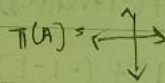 π(A) =